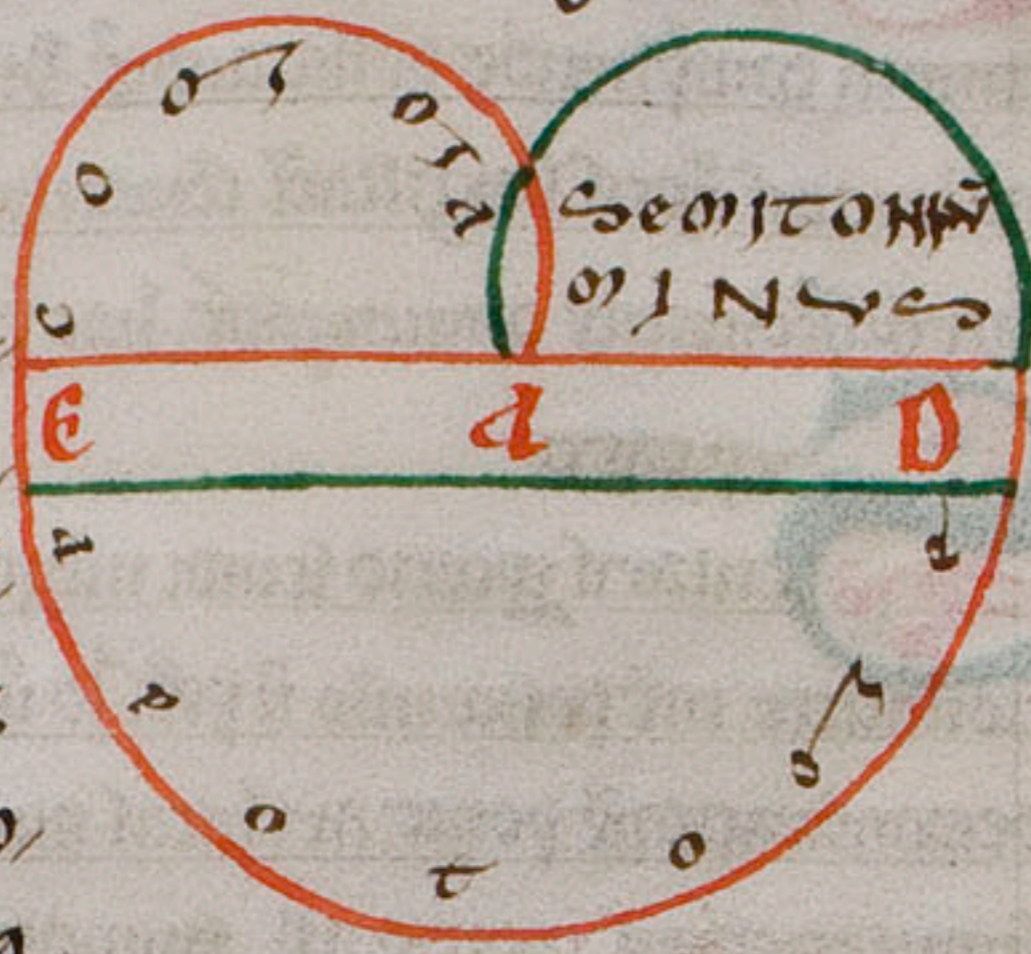 comma
Semitoniū
minus
E A D
apotome